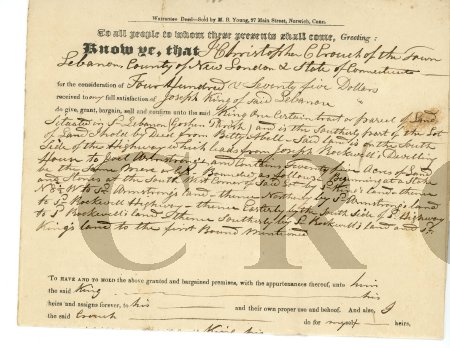 Warrantee Deed—Sold by M. B. Young, 97 Main Street, Norwich, Conn.
To all people to whom these presents shall come, Greeting:
Know ye, that I Christopher C Crouch of the Town
Lebanon, County of New London & State of Connecticut
for the consideration of Four Hundred & Seventy five Dollars
received to my full satisfaction of Joseph King of said Lebanon
do give, grant, bargain, sell and confirm unto the said King One Certain tract or parcel of Land
Situated in Sd Lebanon (Goshen Parish) and is the Southerly part of the Lot
of Land I hold by Deed from Betsy - Said land is on the South
Side of the Highway which leads from Joseph Rockwell's Dwelling
House to Joel Armstrong's and Contains Seventy five Acres of Land
be the Same more or less Bounded as follows Beginning at a Stake
& Stones at the South West Corner of Said Lot by Sd King's land thence
to Sd Armstrong's land - thence Northerly by Sd Armstrong's land
to Sd Rockwell Highway - thence Easterly by the South Side of Sd Highway
to Sd Rockwell's land thence Southerly by Sd Rockwell's land and Sd
King's land to the first Bound Mentioned
CRO
To have and to hold the above granted and bargained premises, with the appurtenances thereof, unto him
the said King his
heirs and assigns forever, to his and their own proper use and behoof. And also, I
the said Crouch do for myself heirs,
King his